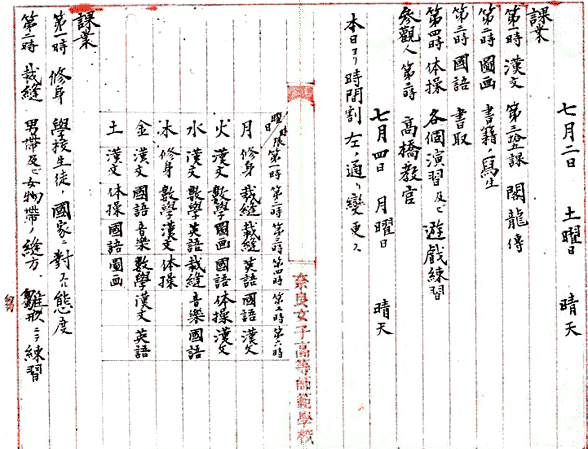 七月二日 土曜日 晴天
課業
第一時 漢文 五課
第二時 圖画 書籍ノ寫生
第三時 國語 書取
第四時 体操 各個演習及ビ遊戯練習
参觀人 第二時 高橋教官
七月四日 月曜日 晴天
本日ヨリ時間割左ノ通リ變更ス
奈良女子高等師範學校
曜日 時限 第一時 第二時 第三時 第四時 第五時 第六時
月 修身 裁縫 裁縫 英語 國語 漢文
火 漢文 數學 圖画 國語 体操 漢文
水 漢文 數學 英語 裁縫 音樂 國語
木 修身 數學 漢文 体操
金 漢文 國語 音樂 數學 漢文 英語
土 漢文 体操 國語 圖画
課業
第一時 修身 學校生徒ノ國家ニ對スル態度
第二時 裁縫 男帯及ビ女物帯ノ縫方、雛形ニテ練習